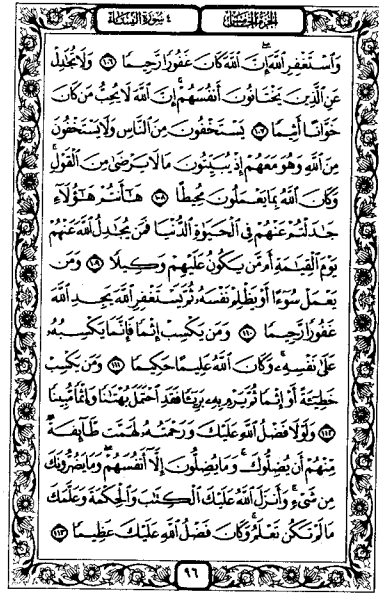 الجزء الخامس ٤ سورة النساء
وَٱسْتَغْفِرِ ٱللَّهَ إِنَّ ٱللَّهَ كَانَ غَفُورًا رَّحِيمًا ١٠٦ وَلَا تُجَٰدِلْ
عَنِ ٱلَّذِينَ يَخْتَانُونَ أَنفُسَهُمْ إِنَّ ٱللَّهَ لَا يُحِبُّ مَن كَانَ
خَوَّانًا أَثِيمًا ١٠٧ يَسْتَخْفُونَ مِنَ ٱلنَّاسِ وَلَا يَسْتَخْفُونَ
مِنَ ٱللَّهِ وَهُوَ مَعَهُمْ إِذْ يُبَيِّتُونَ مَا لَا يَرْضَىٰ مِنَ ٱلْقَوْلِ
وَكَانَ ٱللَّهُ بِمَا يَعْمَلُونَ مُحِيطًا ١٠٨ هَٰٓأَنتُمْ هَٰٓؤُلَآءِ
جَٰدَلْتُمْ عَنْهُمْ فِي ٱلْحَيَوٰةِ ٱلدُّنْيَا فَمَن يُجَٰدِلُ ٱللَّهَ عَنْهُمْ
يَوْمَ ٱلْقِيَٰمَةِ أَم مَّن يَكُونُ عَلَيْهِمْ وَكِيلًا ١٠٩ وَمَن
يَعْمَلْ سُوٓءًا أَوْ يَظْلِمْ نَفْسَهُۥ ثُمَّ يَسْتَغْفِرِ ٱللَّهَ يَجِدِ ٱللَّهَ
غَفُورًا رَّحِيمًا ١١٠ وَمَن يَكْسِبْ إِثْمًا فَإِنَّمَا يَكْسِبُهُۥ
عَلَىٰ نَفْسِهِۦ وَكَانَ ٱللَّهُ عَلِيمًا حَكِيمًا ١١١ وَمَن يَكْسِبْ
خَطِيٓـَٔةً أَوْ إِثْمًا ثُمَّ يَرْمِ بِهِۦ بَرِيٓـًٔا فَقَدِ ٱحْتَمَلَ بُهْتَٰنًا وَإِثْمًا مُّبِينًا
١١٢ وَلَوْلَا فَضْلُ ٱللَّهِ عَلَيْكَ وَرَحْمَتُهُۥ لَهَمَّت طَّآئِفَةٌ
مِّنْهُمْ أَن يُضِلُّوكَ وَمَا يُضِلُّونَ إِلَّآ أَنفُسَهُمْ وَمَا يَضُرُّونَكَ
مِن شَيْءٍ وَأَنزَلَ ٱللَّهُ عَلَيْكَ ٱلْكِتَٰبَ وَٱلْحِكْمَةَ وَعَلَّمَكَ
مَا لَمْ تَكُن تَعْلَمُ وَكَانَ فَضْلُ ٱللَّهِ عَلَيْكَ عَظِيمًا ١١٣
٩٦